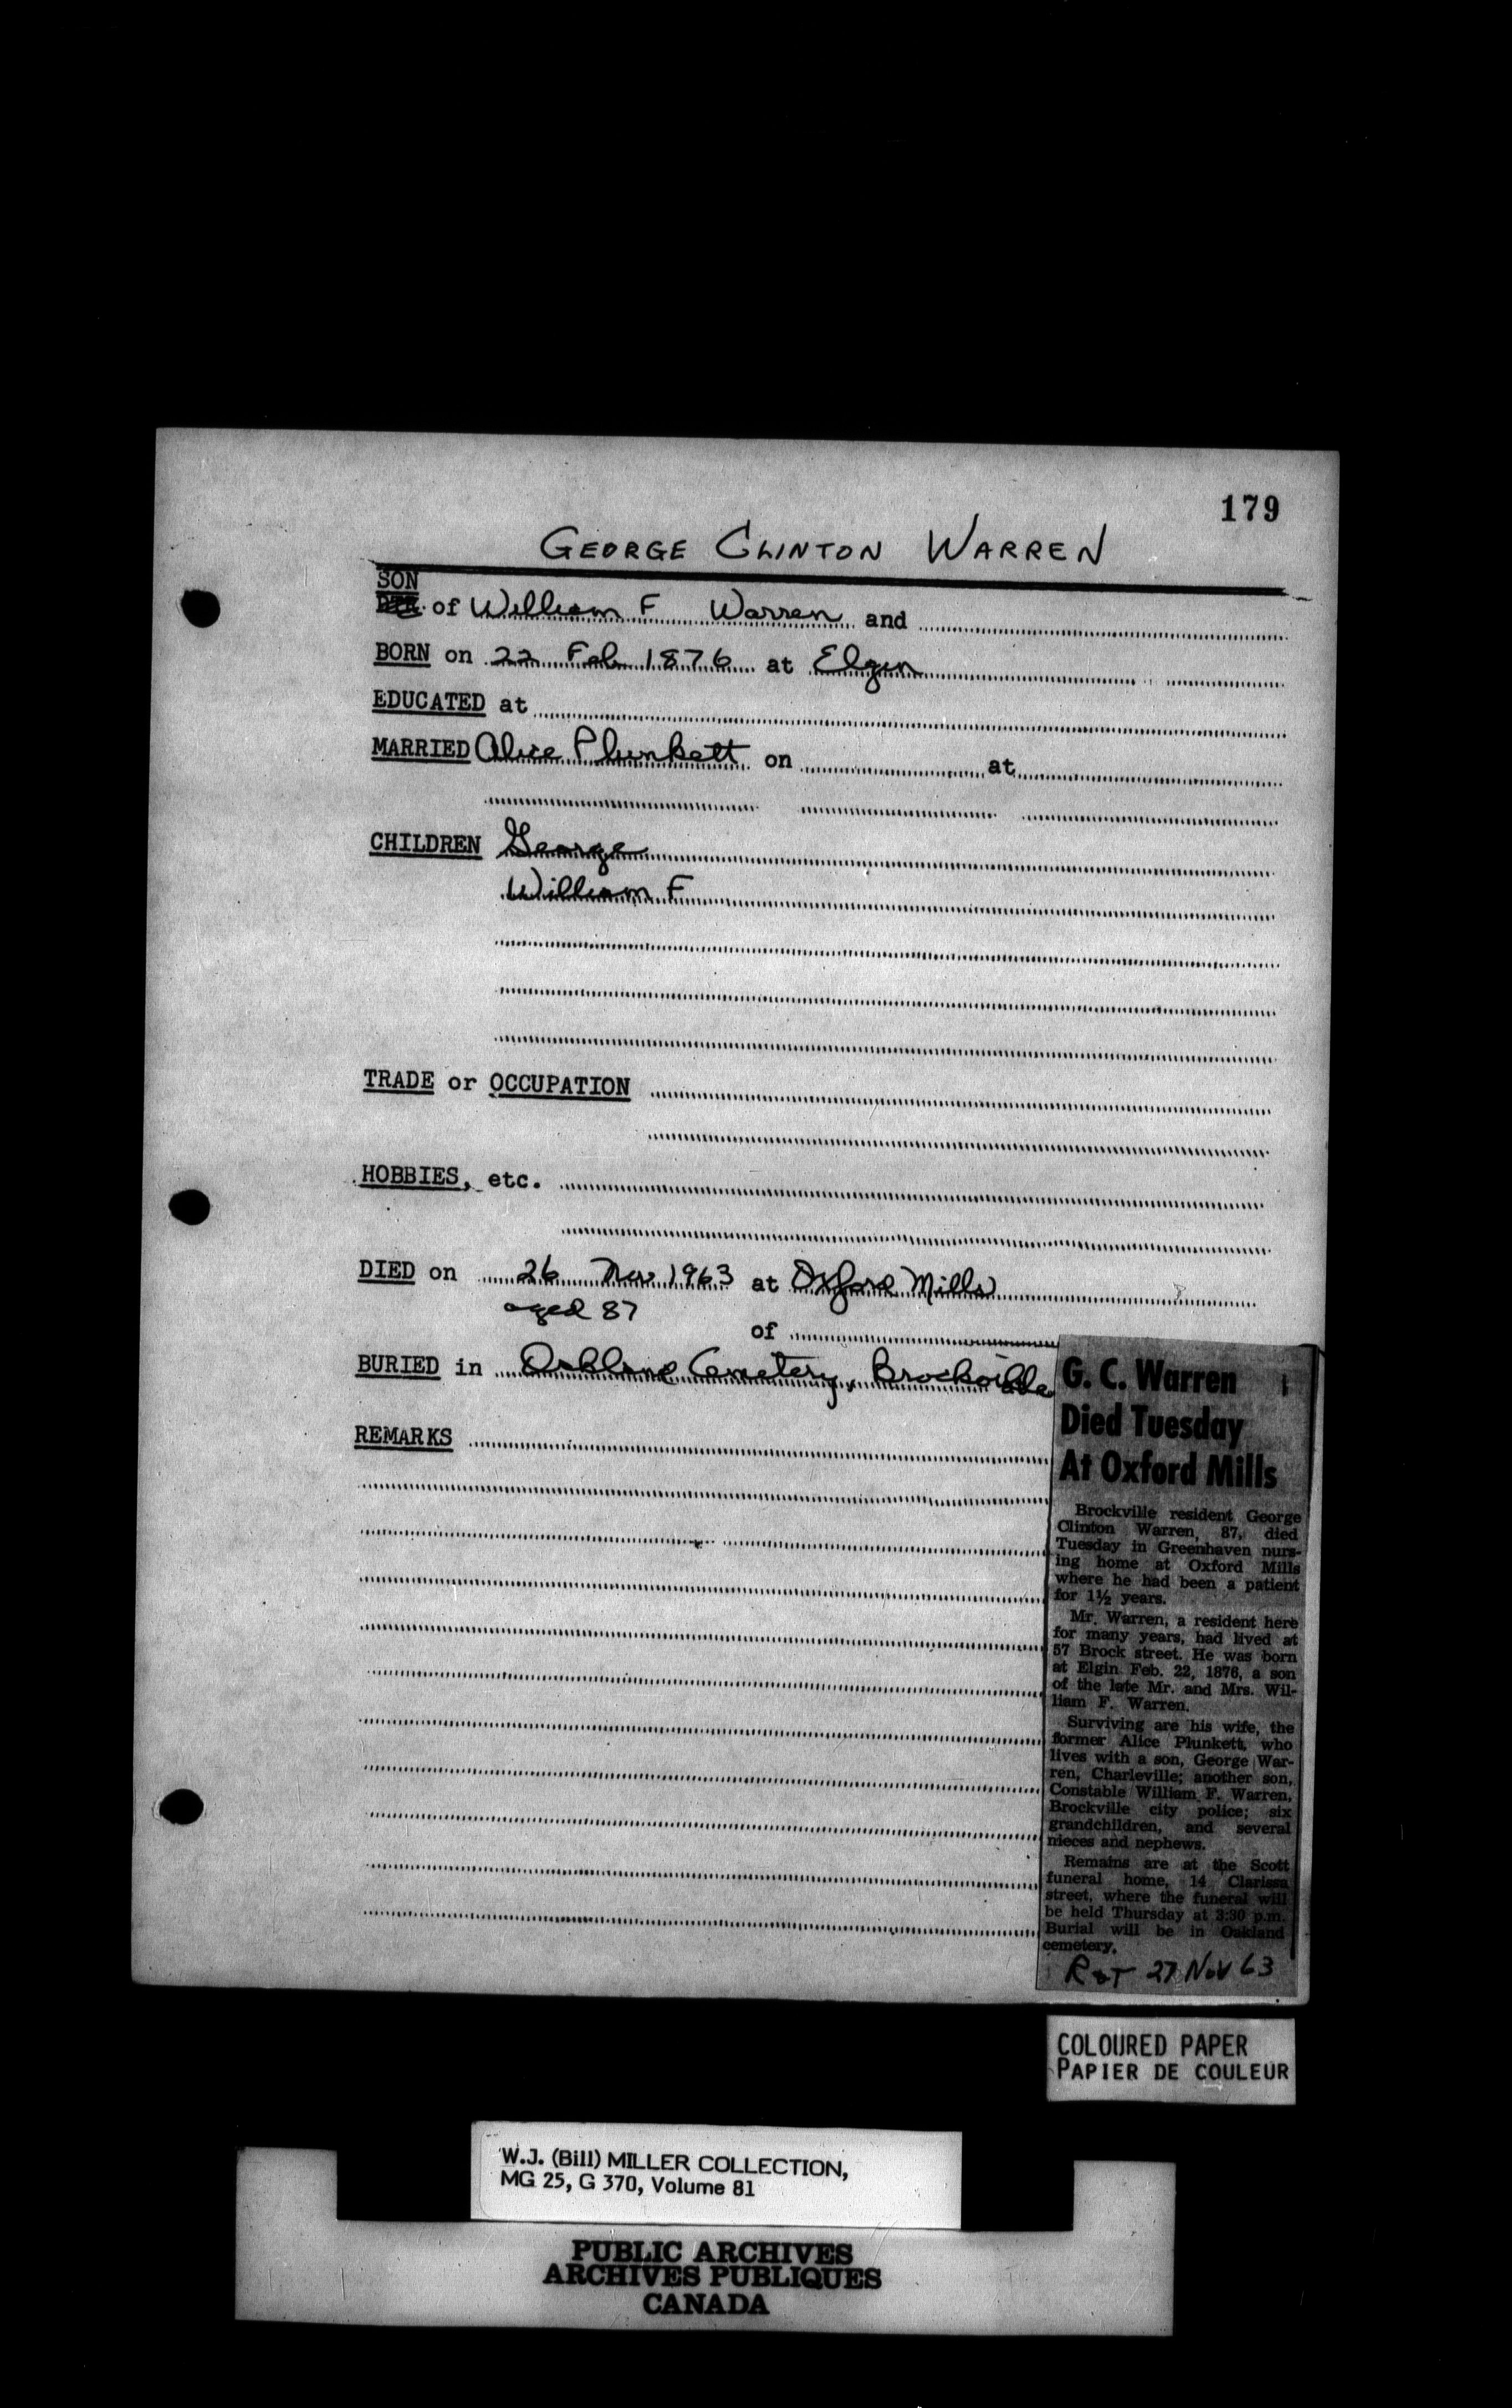 179
GEORGE CLINTON WARREN
SON
DTR. of William F Warren and
BORN on 22 Feb 1876 at Elgin
EDUCATED at
MARRIED Alice Plunkett on at
CHILDREN George
William F
TRADE or OCCUPATION
HOBBIES, etc.
DIED on 26 Nov 1963 at Oxford Mills
aged 87
of
BURIED in Oakland Cemetery, Brockville
REMARKS
G. C. Warren
Died Tuesday
At Oxford Mills
Brockville resident George
Clinton Warren, 87, died
Tuesday in Greenhaven nurs-
ing home at Oxford Mills
where he had been a patient
for 1½ years.
Mr. Warren, a resident here
for many years, had lived at
57 Brock street. He was born
at Elgin Feb. 22, 1876, a son
of the late Mr. and Mrs. Wil-
liam F. Warren.
Surviving are his wife, the
former Alice Plunkett, who
lives with a son, George War-
ren, Charleville; another son,
Constable William F. Warren,
Brockville city police; six
grandchildren, and several
nieces and nephews.
Remains are at the Scott
funeral home, 14 Clarissa
street, where the funeral will
be held Thursday at 3:30 p.m.
Burial will be in Oakland
cemetery.
R&T 27 Nov 63
COLOURED PAPER
PAPIER DE COULEUR
W.J. (Bill) MILLER COLLECTION,
MG 25, G 370, Volume 81
PUBLIC ARCHIVES
ARCHIVES PUBLIQUES
CANADA